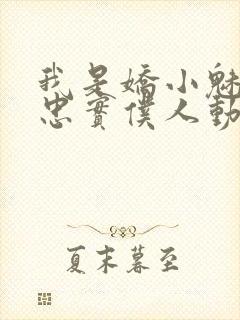 我是嬌小魅
忠實僕人動
夏末暮至